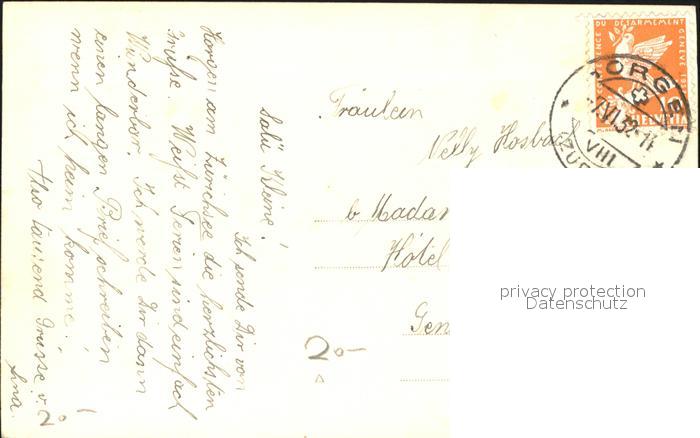 Salü Kleine!
Ich sende Dir von
Horgen am Zürichsee die herzlichsten
Grüße. Weißt Ferien sind einfach
Wunderbar. Ich werde Dir dann
einen langen Brief schreiben,
wenn ich heim komme!
Also tausend Grüsse v.
Lina.
Fräulein
Nelly Hosbach
b Madam
Hôtel
Gen
20—
20
CONFERENCE DU DESARMEMENT GENEVE 1932
HELVETIA
HORGEN
VI.32-11
VIII
privacy protection
Datenschutz